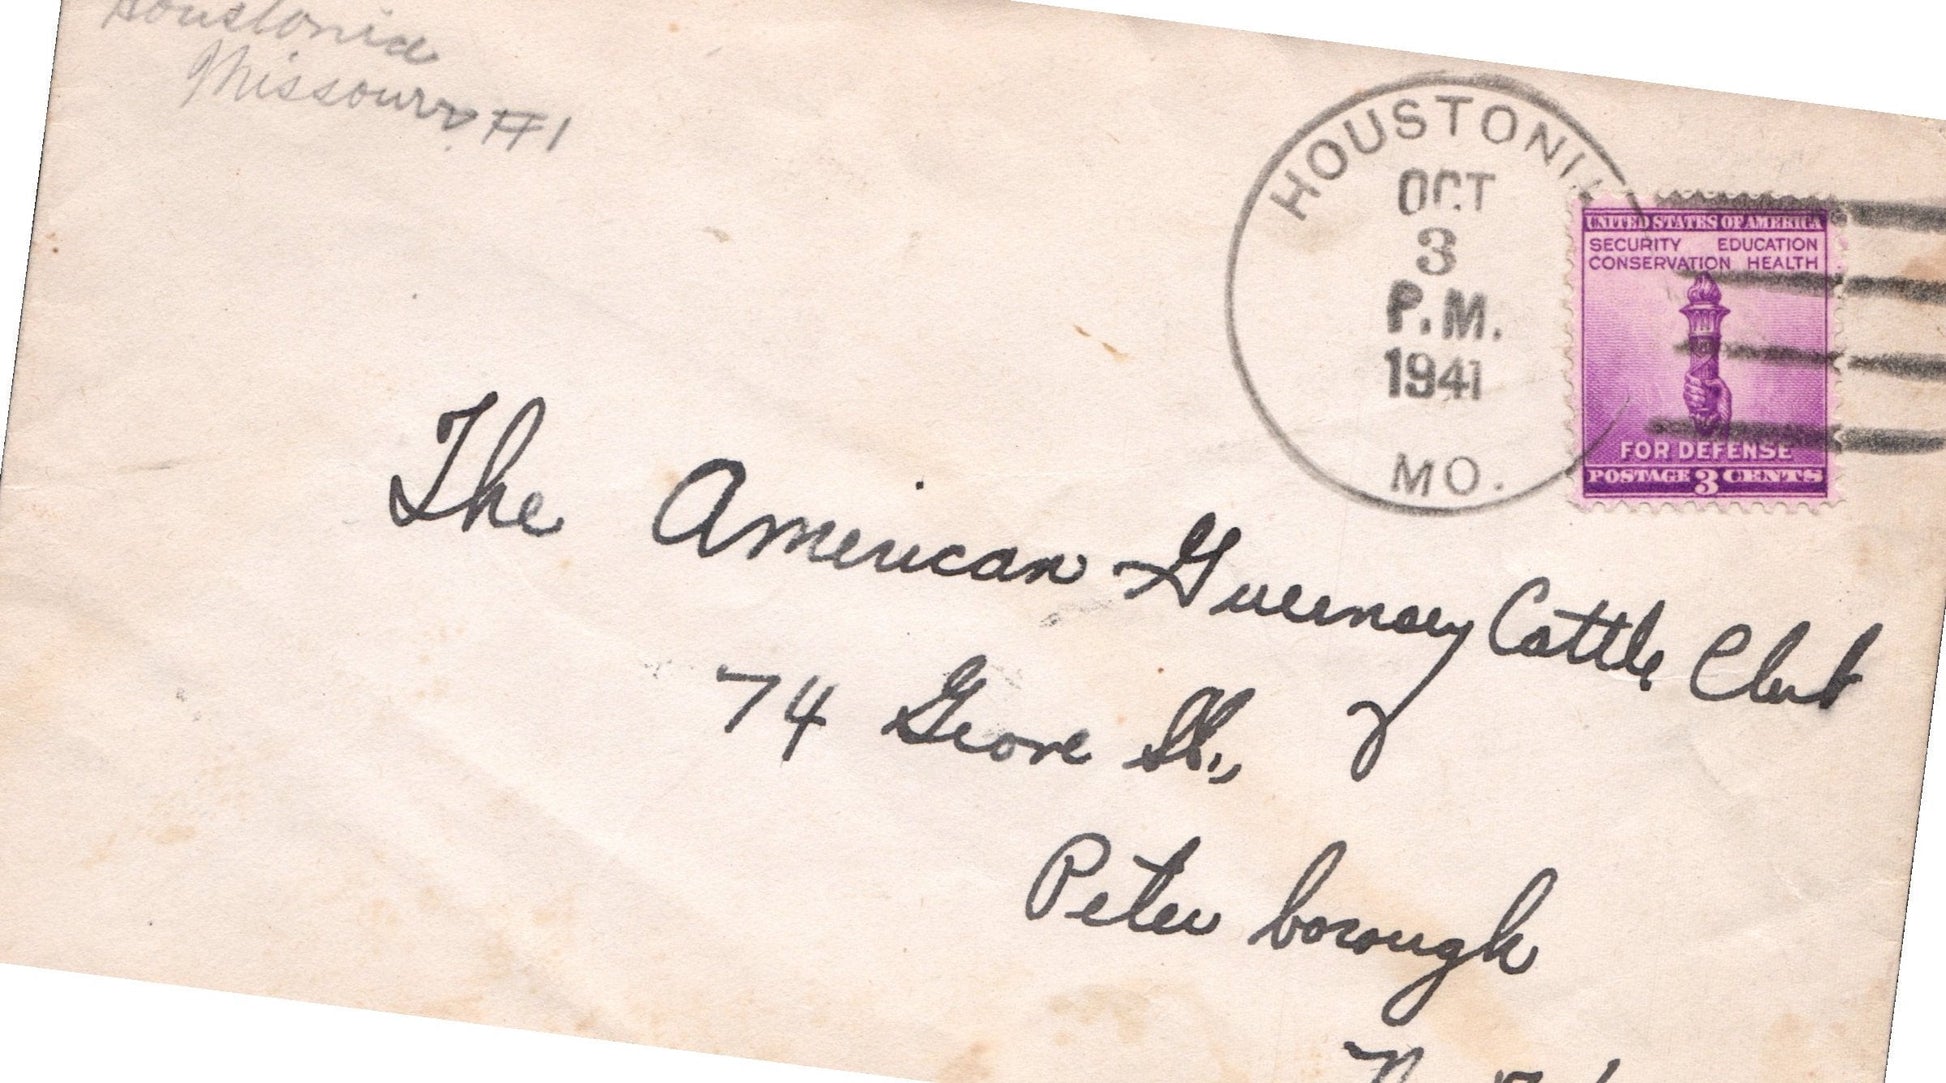 Houstonia
Missouri #1
HOUSTONIA
OCT
3
P.M.
1941
MO.
UNITED STATES OF AMERICA
SECURITY EDUCATION
CONSERVATION HEALTH
FOR DEFENSE
POSTAGE 3 CENTS
The American Guernsey Cattle Club
74 Grove St.,
Peter borough